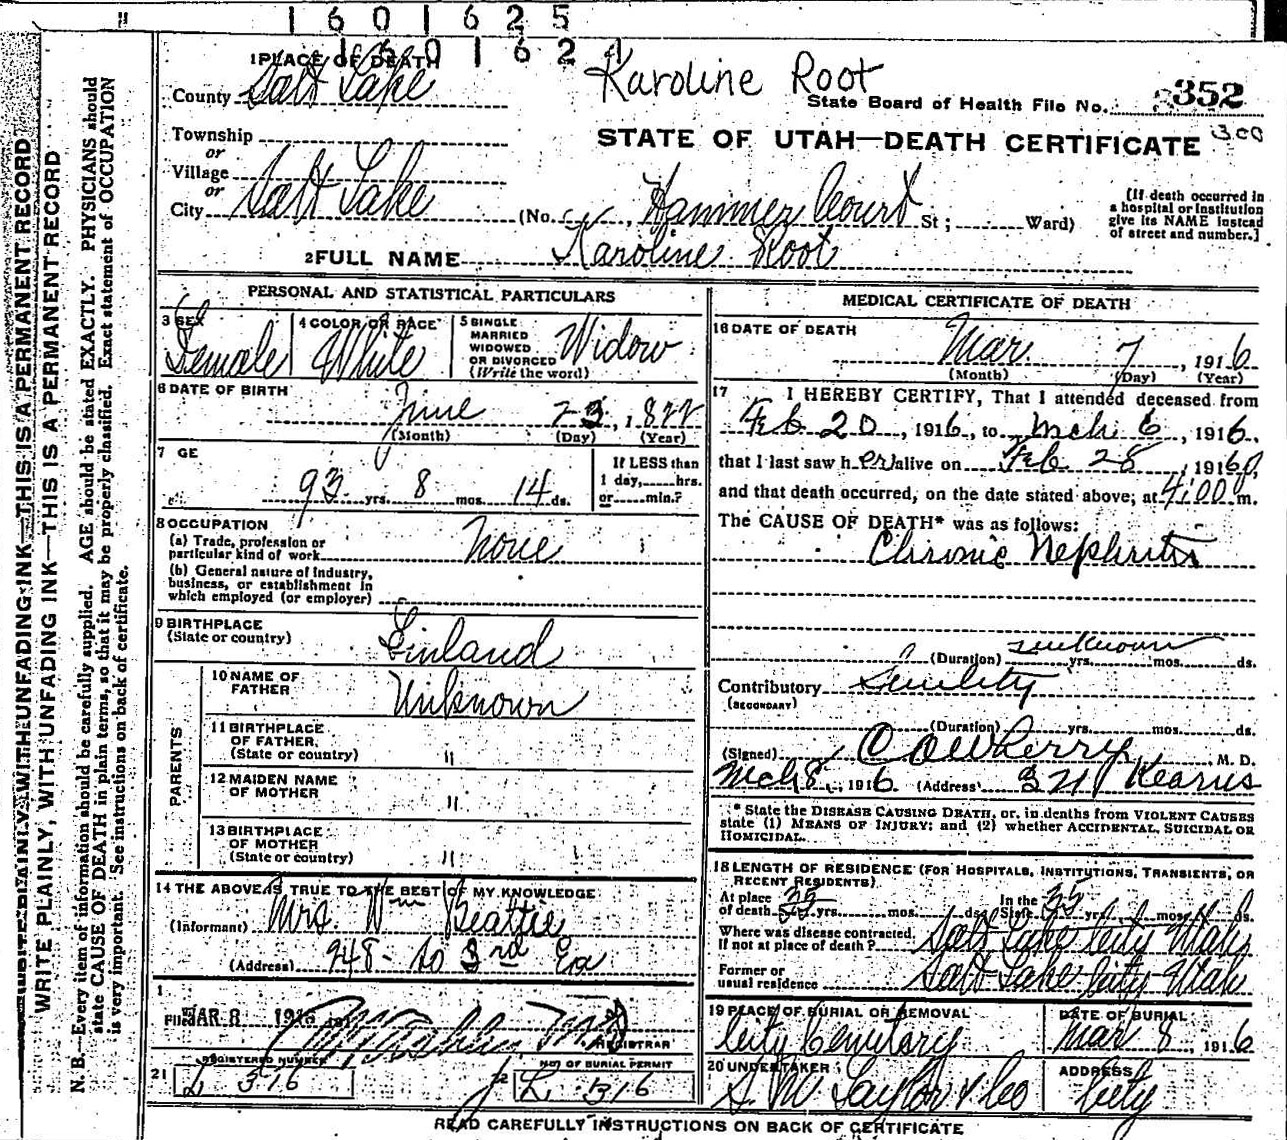 1 6 0 1 6 2 5
1 6 0 1 6 2
1 PLACE OF DEATH
Karoline Root
County Salt Lake
State Board of Health File No. 352
300
Township
or
Village
or
City Salt Lake
STATE OF UTAH—DEATH CERTIFICATE
(No. Hammer Court St; Ward)
(If death occurred in
a hospital or institution
give its NAME instead
of street and number.]
2 FULL NAME Karoline Root
PERSONAL AND STATISTICAL PARTICULARS
3 SEX
Female
4 COLOR OR RACE
White
5 SINGLE
MARRIED
WIDOWED
OR DIVORCED
(Write the word)
Widow
6 DATE OF BIRTH
June 23, 1822
(Month) (Day) (Year)
7 GE
93 yrs. 8 mos. 14 ds.
If LESS than
1 day, hrs.
or min.?
8 OCCUPATION
(a) Trade, profession or
particular kind of work None
(b) General nature of industry,
business, or establishment in
which employed (or employer)
9 BIRTHPLACE
(State or country)
Finland
PARENTS
10 NAME OF
FATHER
Unknown
11 BIRTHPLACE
OF FATHER
(State or country)
"
12 MAIDEN NAME
OF MOTHER
"
13 BIRTHPLACE
OF MOTHER
(State or country)
"
14 THE ABOVE IS TRUE TO THE BEST OF MY KNOWLEDGE
(Informant) Mrs. Wm Beattie
(Address) 948 - So 3rd Ea
MAR 8 1916
REGISTRAR
REGISTERED NUMBER
NO. OF BURIAL PERMIT
21 L 316
L 316
MEDICAL CERTIFICATE OF DEATH
16 DATE OF DEATH
Mar. 7, 1916
(Month) (Day) (Year)
17 I HEREBY CERTIFY, That I attended deceased from
Feb 20, 1916, to Mch 6, 1916.
that I last saw her alive on Feb 28, 1916
and that death occurred, on the date stated above; at 4:00 m.
The CAUSE OF DEATH* was as follows:
Chronic Nephritis
(Duration) unknown yrs. mos. ds.
Contributory Senility
(SECONDARY)
(Duration) yrs. mos. ds.
(Signed) M. D.
Mch 8, 1916 (Address) Kearns
* State the DISEASE CAUSING DEATH, or, in deaths from VIOLENT CAUSES
state (1) MEANS OF INJURY; and (2) whether ACCIDENTAL, SUICIDAL OR
HOMICIDAL.
18 LENGTH OF RESIDENCE (FOR HOSPITALS, INSTITUTIONS, TRANSIENTS, OR
RECENT RESIDENTS)
At place
of death 35 yrs. mos. ds.
In the
State 35 yrs. mos. ds.
Where was disease contracted,
if not at place of death? Salt Lake City Utah
Former or
usual residence Salt Lake City Utah
19 PLACE OF BURIAL OR REMOVAL
City Cemetary
DATE OF BURIAL
Mar 8, 1916
20 UNDERTAKER
S. M. Taylor & Co
ADDRESS
City
READ CAREFULLY INSTRUCTIONS ON BACK OF CERTIFICATE
WRITE PLAINLY, WITH UNFADING INK—THIS IS A PERMANENT RECORD
N. B.—Every item of information should be carefully supplied. AGE should be stated EXACTLY. PHYSICIANS should
state CAUSE OF DEATH in plain terms, so that it may be properly classified. Exact statement of OCCUPATION
is very important. See instructions on back of certificate.